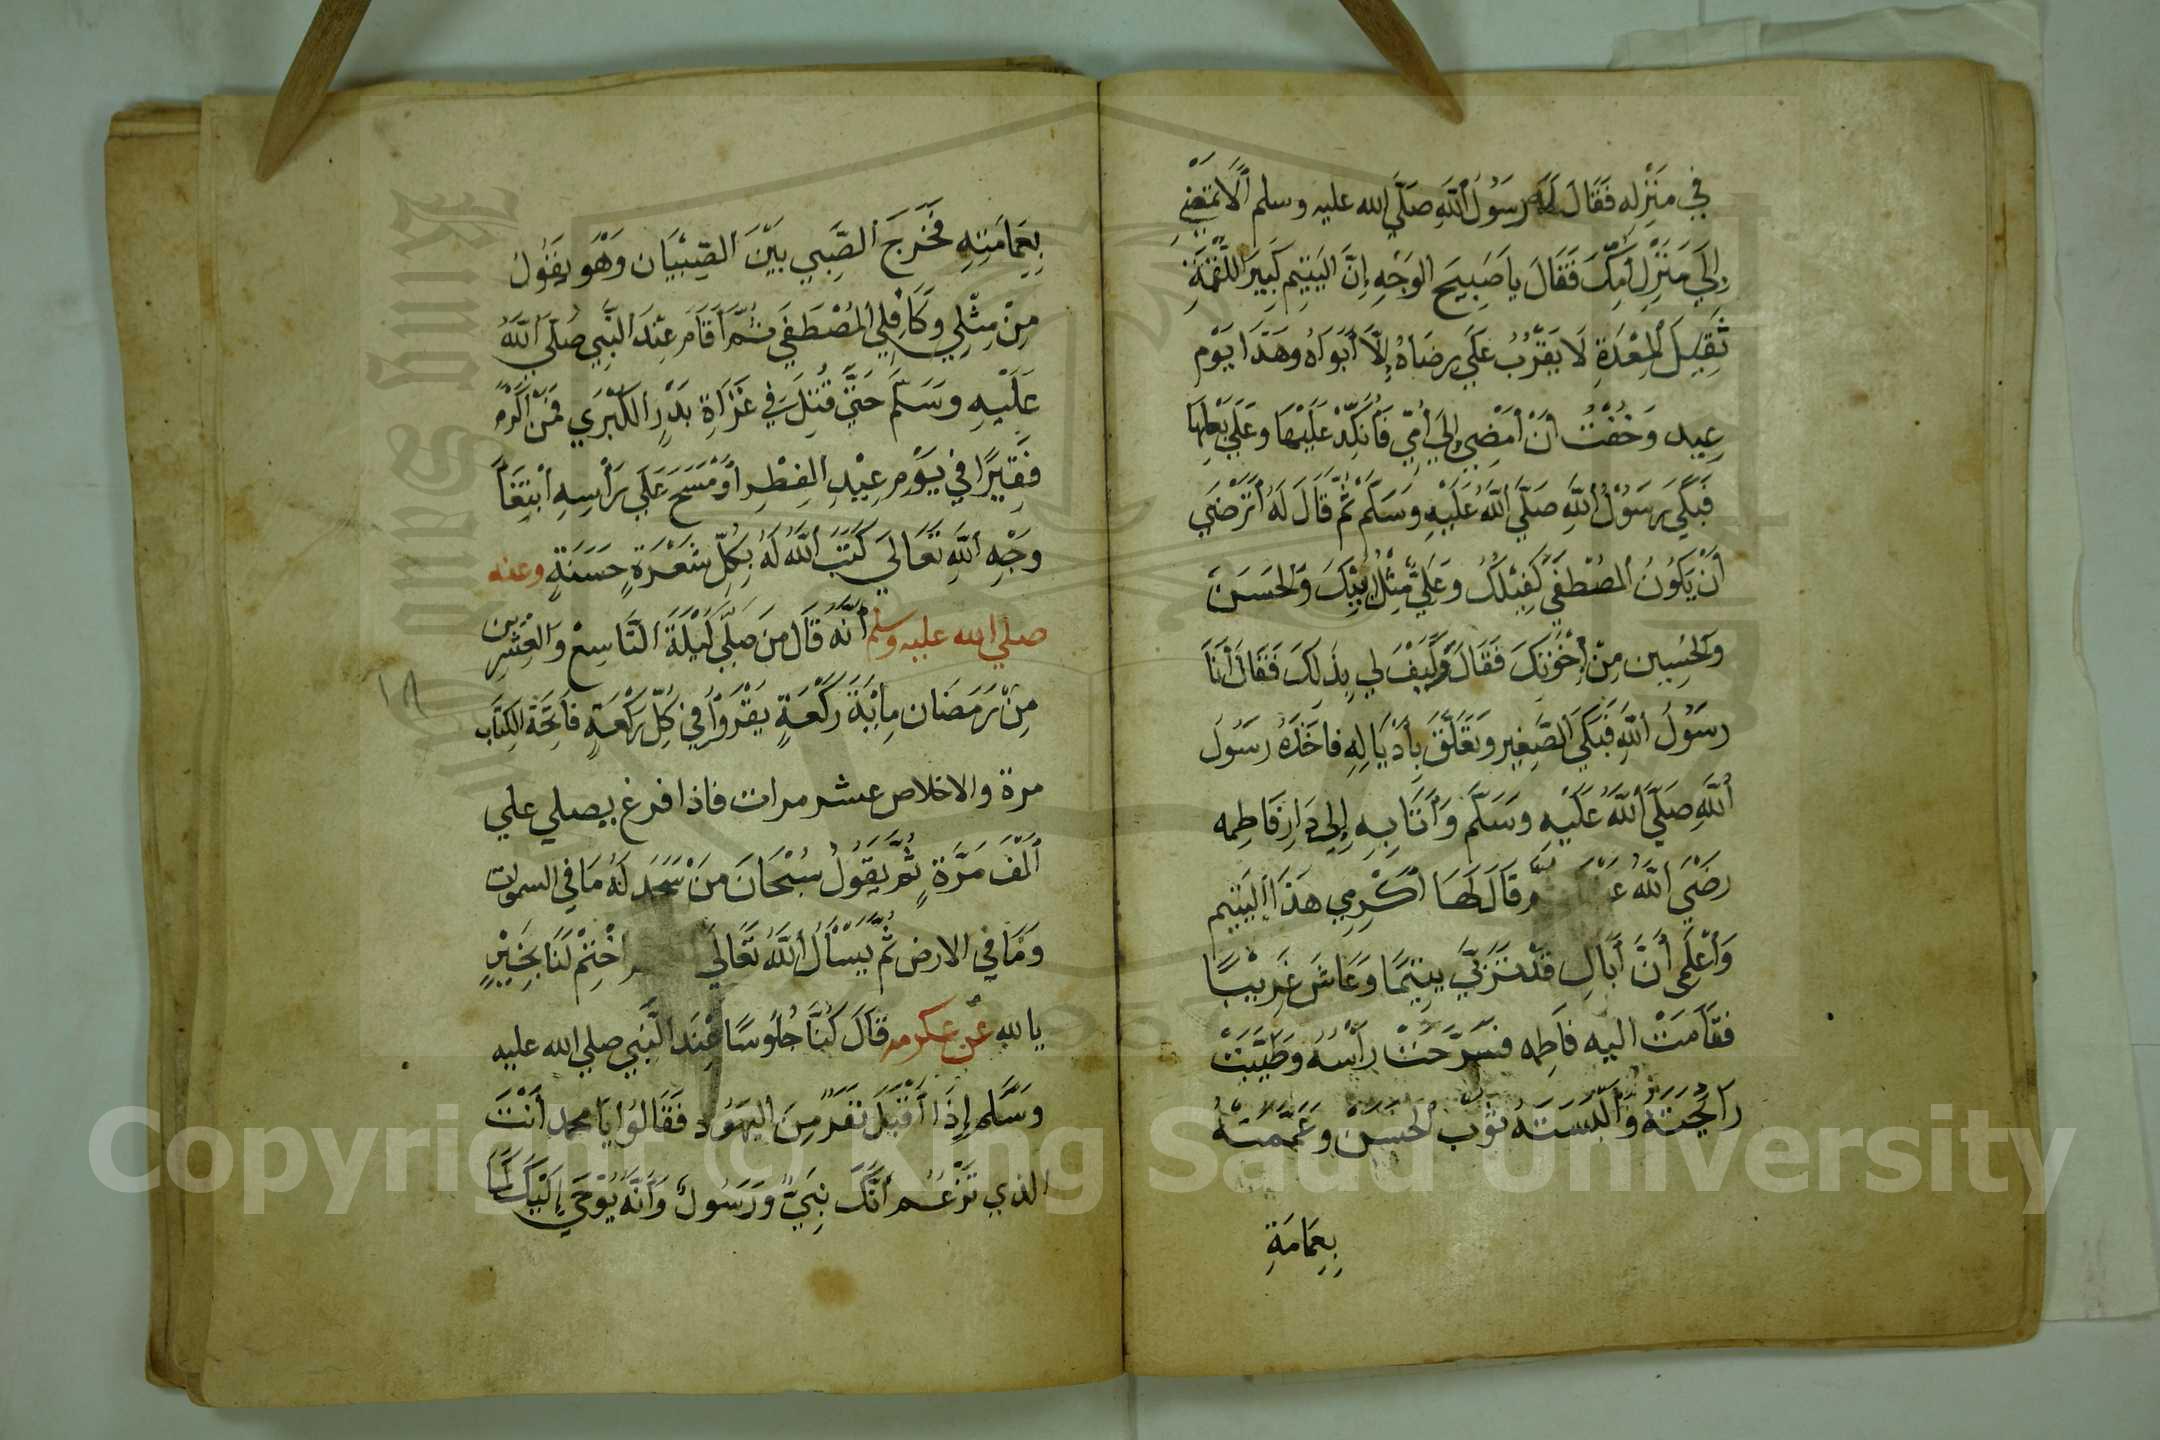 في مَنْزِلِه فَقَالَ لَهُ رَسُولُ اللَّهِ صَلَّي الله عليه وسلم أَلَا تَمْضِي
إِلَي مَنْزِلِ أُمِّكَ فَقَالَ يا صَبِيحَ الوَجْهِ إِنَّ اليَتِيم كَبِيرَ اللُّقْمَةِ
ثَقِيلَ المِعْدَةِ لَا يَقْرُبُ عَلَي رِضَاهُ إِلَّا أَبَوَاهُ وهَذَا يَوْم
عِيد وَخُفْتُ أَنْ أَمْضِي إِلَي أُمِّي فَأُنَكِّدْ عَلَيْهَا وعَلَي بَعْلِهَا
فَبَكَي رَسُولُ اللَّهِ صَلَّي اللَّهُ عَلَيْهِ وَسَلَّمْ ثُمَّ قَالَ لَهُ أَتَرْضَي
أَنْ يَكُونُ المصْطَفَي كَفِيلَكُ وعَلِيّ مِثْلُ أَبِيكَ وَالحَسَنَ
وَالحُسِين مِنْ إِخْوَتِكَ فَقَالَ وَكَيْفَ لي بِذَلِكَ فَقَالَ أَنَا
رسُولُ اللَّهِ فَبَكَي الصَّغِير وَتَعَلَّقَ بِأَذْيَالِهِ فاخَذَهُ رسُولُ
اللَّهِ صَلَّي اللَّهُ عَلَيْه وسَلَّم وَأَتَا بِهِ إِلي دَارِ فَاطِمه
رَضِيَ اللَّهُ وقَالَ لَهَا أَكْرِمِي هَذَا اليَتِيم
وَأَعْلَمِي أَنَّ أَبَاكِ قَدْ تَرَبَّي يَتِيمًا وَعَاشَ غَرِيبًا
فَقَامَتْ اليه فَاطِمه فسَرَّحَتْ رَأْسَهُ وطَيَّبَتْ
رَائِحَتَهُ وَأَلْبَسَتَهُ ثَوْبَ الحَسَنْ وعَمَّمَتهُ
بِعِمَامَةِ
بِعِمَامَتِهِ فَخَرَجَ الصَّبِي بَيْنَ الصِّبْيَان وَهُو يَقُولُ
مِنْ مِثْلِي وكَافِلِي المُصْطَفَي ثُمَّ أَقَامَ عِنْدَ النَّبِي صَلَّي اللَّهُ
عَلَيْهِ وسَلَّمَ حَتَّي قُتِلَ فِي غَزَاةِ بَدْرِ الكُبْرَي فَمَنْ أَكْرَمَ
فَقِيرًا في يَوْمِ عِيْدِ الفِطْرِ أَوْ مَسَحَ عَلَي رَأْسِهِ ابْتِغَاً
وَجْهِ اللَّهِ تَعَالي كَتَبَ اللَّهُ لَهُ بِكُلِّ شَعْرَةٍ حَسَنَةٍ وعنه
صلي الله عليه وسلم أَنَّهُ قَالَ مَنْ صَلَّي لَيْلَةَ التَّاسِعْ وَالعِشْرِين
مِنْ رَمَضَان مِائَةَ رَكْعَةٍ يَقْرَوُا في كُلِّ رَكْعَةٍ فَاتِحَةَ الكِتَابْ
مرة والاخلاص عشر مرات فاذا فرغ يصلي علي
أَلْفَ مَرَّةٍ ثُمَّ يَقُولُ سُبْحَانَ مَنْ سَجَدَ لَهُ مَا في السموات
وَمَا في الارض ثُمَّ يَسْأَلُ اللَّهَ تَعَالَي اخْتِمْ لَنَا بِخَيْرٍ
يا الله عَنْ عكرمه قَالَ كُنَّا جُلُوسًا عِنْدَ النَّبِي صلي الله عليه
وسَلَّم إِذَا أَقْبَلَ نَفَرٌ مِنَ اليَهُود فَقَالُوا يا محمد أَنْتَ
الذي تَزْعُم أَنَّكَ نِبَيٌّ وَرَسُولٌ وَأَنَّهُ يُوْحَي إِلَيْكَ كَمَا
١٨
Copyright © King Saud University
King Saud University